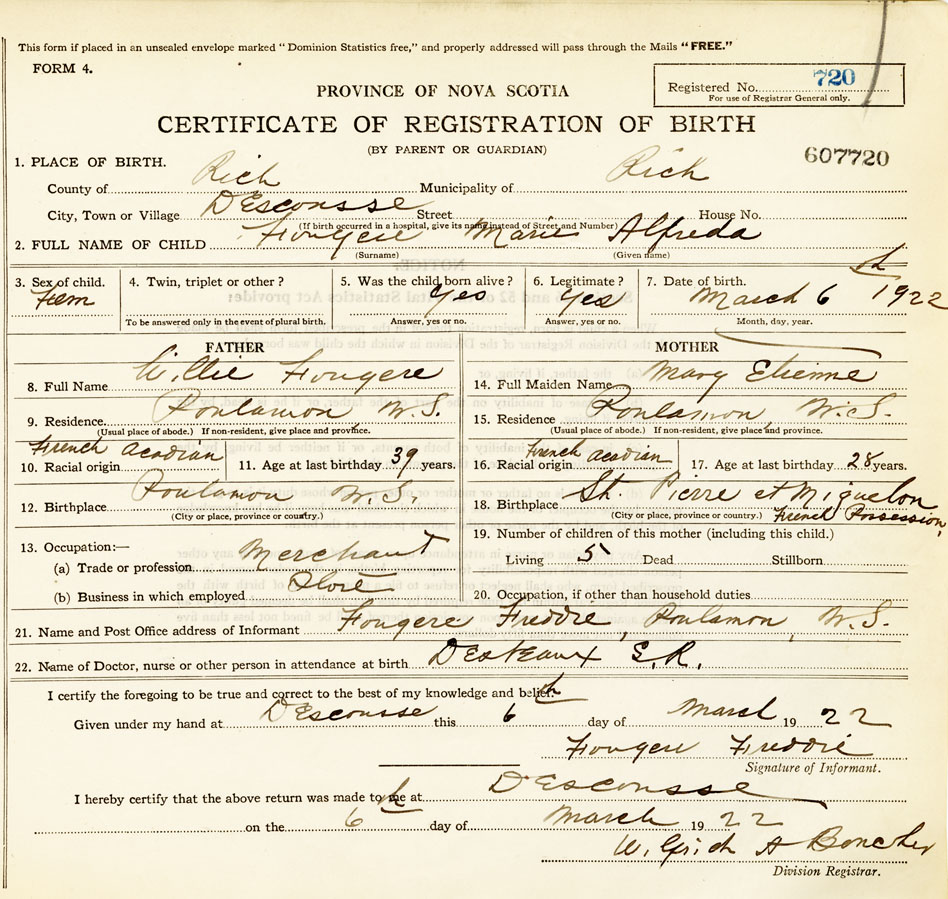 This form if placed in an unsealed envelope marked "Dominion Statistics free," and properly addressed will pass through the Mails "FREE."
FORM 4.
Registered No. 720
For use of Registrar General only.
PROVINCE OF NOVA SCOTIA
CERTIFICATE OF REGISTRATION OF BIRTH
(BY PARENT OR GUARDIAN)
607720
1. PLACE OF BIRTH.
County of Rich Municipality of Rich
City, Town or Village D'Escousse Street House No.
(If birth occurred in a hospital, give its name instead of Street and Number)
2. FULL NAME OF CHILD Fougere Marie Alfreda
(Surname) (Given name)
3. Sex of child. Fem
4. Twin, triplet or other?
To be answered only in the event of plural birth.
5. Was the child born alive? Yes
Answer, yes or no.
6. Legitimate? Yes
Answer, yes or no.
7. Date of birth. March 6th 1922
Month, day, year.
FATHER
8. Full Name Willie Fougere
9. Residence. Poulamon N.S.
(Usual place of abode.) If non-resident, give place and province.
10. Racial origin French Acadian
11. Age at last birthday 39 years.
12. Birthplace Poulamon N.S.
(City or place, province or country.)
13. Occupation:—
(a) Trade or profession Merchant
(b) Business in which employed Store
MOTHER
14. Full Maiden Name Mary Etienne
15. Residence Poulamon N.S.
(Usual place of abode.) If non-resident, give place and province.
16. Racial origin French Acadian
17. Age at last birthday 28 years.
18. Birthplace St. Pierre et Miquelon
(City or place, province or country.) French Possession,
19. Number of children of this mother (including this child.)
Living 5 Dead Stillborn
20. Occupation, if other than household duties
21. Name and Post Office address of Informant Fougere Freddie, Poulamon, N.S.
22. Name of Doctor, nurse or other person in attendance at birth Desteaux G.R.
I certify the foregoing to be true and correct to the best of my knowledge and belief.
Given under my hand at D'Escousse this 6th day of March 1922
Fougere Freddie
Signature of Informant.
I hereby certify that the above return was made to me at D'Escousse
on the 6th day of March 1922
A Boucher
Division Registrar.